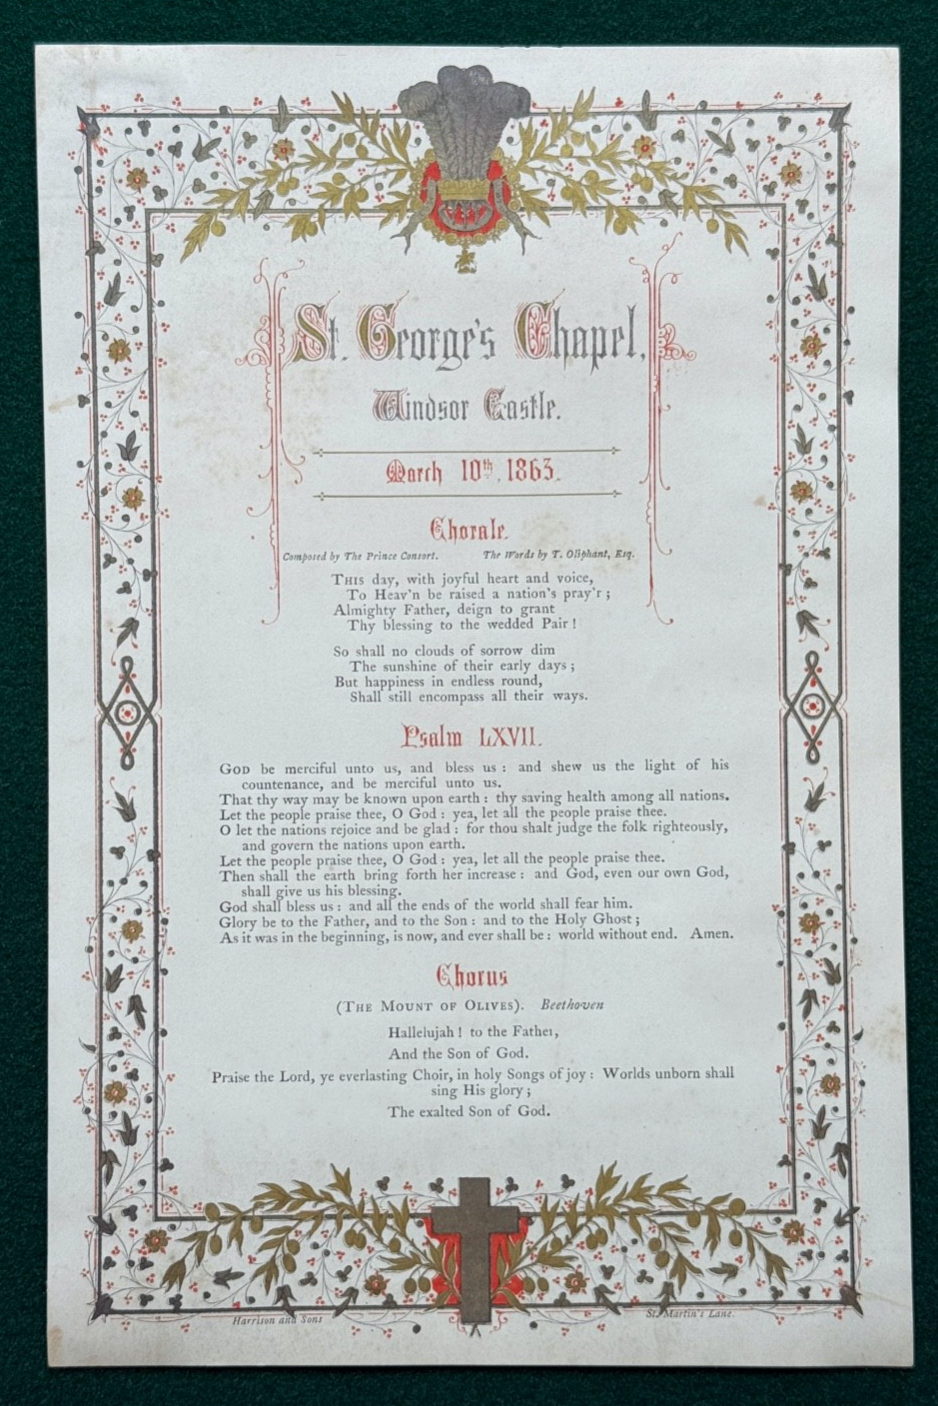 St. George's Chapel,
Windsor Castle.
March 10th, 1863.
Chorale.
Composed by The Prince Consort. The Words by T. Oliphant, Esq.
THIS day, with joyful heart and voice,
To Heav'n be raised a nation's pray'r ;
Almighty Father, deign to grant
Thy blessing to the wedded Pair !
So shall no clouds of sorrow dim
The sunshine of their early days ;
But happiness in endless round,
Shall still encompass all their ways.
Psalm LXVII.
GOD be merciful unto us, and bless us : and shew us the light of his
countenance, and be merciful unto us.
That thy way may be known upon earth : thy saving health among all nations.
Let the people praise thee, O God : yea, let all the people praise thee.
O let the nations rejoice and be glad : for thou shalt judge the folk righteously,
and govern the nations upon earth.
Let the people praise thee, O God : yea, let all the people praise thee.
Then shall the earth bring forth her increase : and God, even our own God,
shall give us his blessing.
God shall bless us : and all the ends of the world shall fear him.
Glory be to the Father, and to the Son : and to the Holy Ghost ;
As it was in the beginning, is now, and ever shall be : world without end. Amen.
Chorus
(THE MOUNT OF OLIVES). Beethoven
Hallelujah ! to the Father,
And the Son of God.
Praise the Lord, ye everlasting Choir, in holy Songs of joy : Worlds unborn shall
sing His glory ;
The exalted Son of God.
Harrison and Sons St. Martin's Lane.